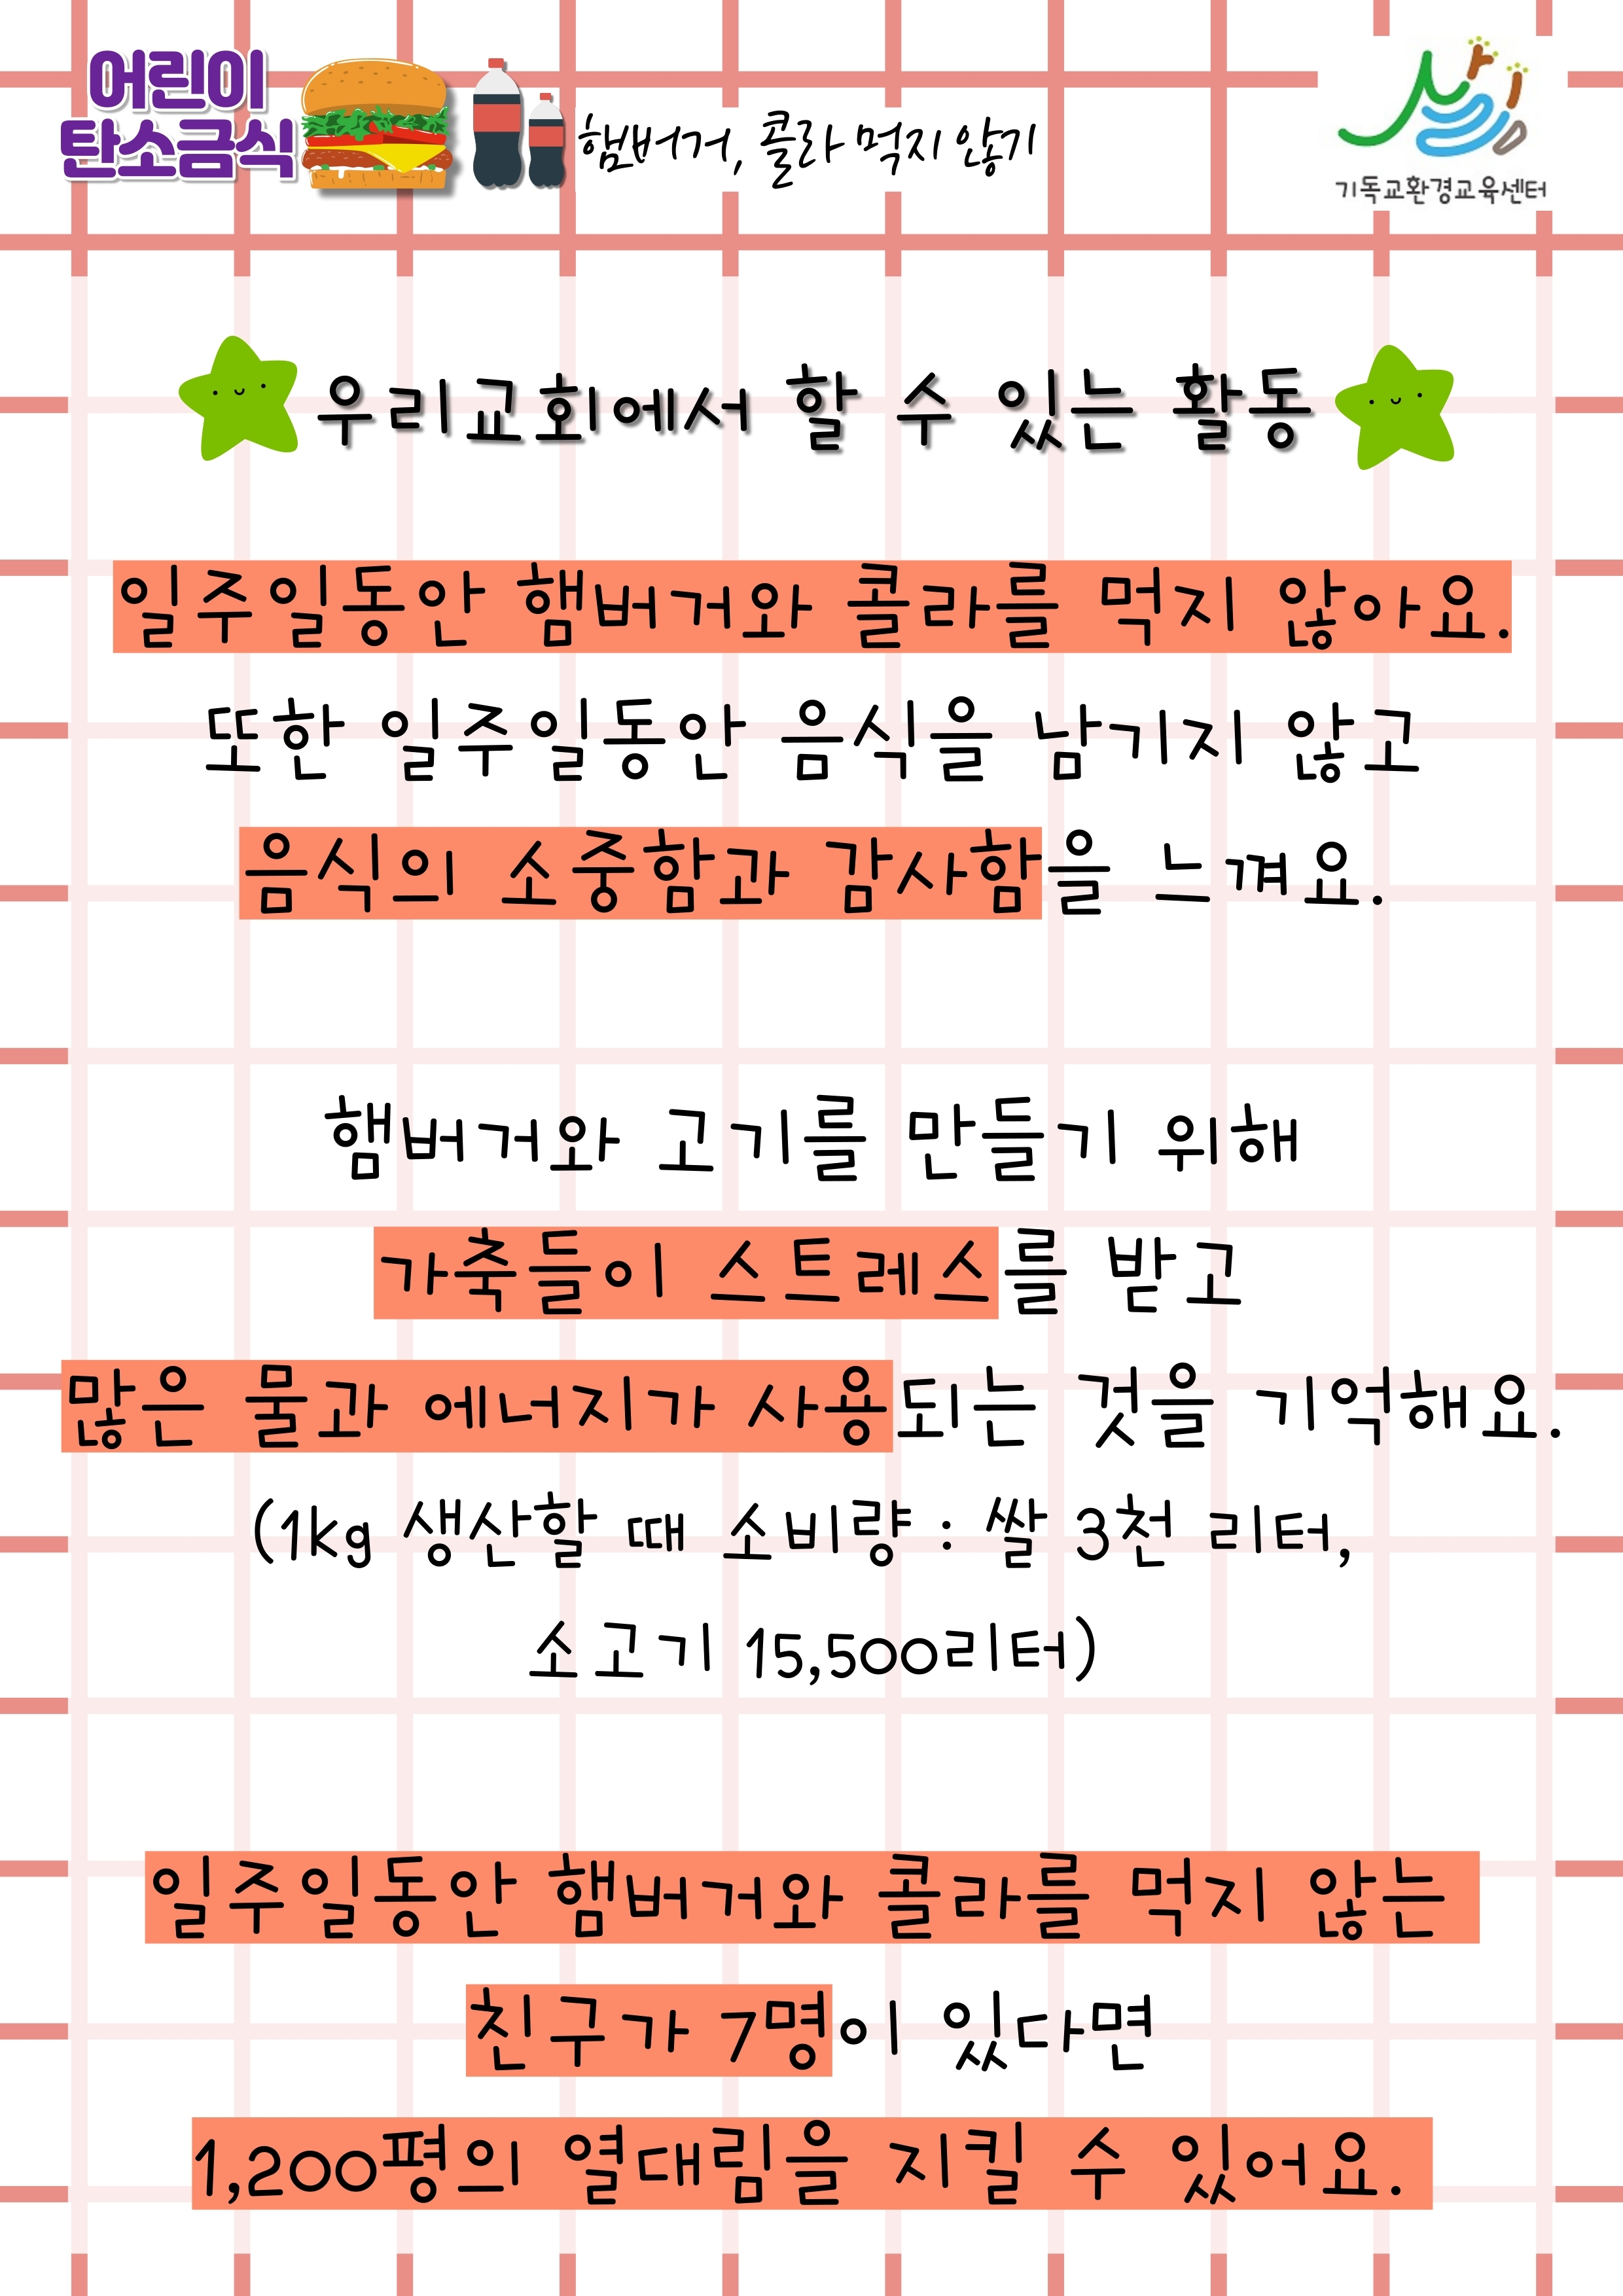 어린이
탄소금식
햄버거, 콜라 먹지 않기
살림
기독교환경교육센터
우리교회에서 할 수 있는 활동
일주일동안 햄버거와 콜라를 먹지 않아요.
또한 일주일동안 음식을 남기지 않고
음식의 소중함과 감사함을 느껴요.
햄버거와 고기를 만들기 위해
가축들이 스트레스를 받고
많은 물과 에너지가 사용되는 것을 기억해요.
(1kg 생산할 때 소비량 : 쌀 3천 리터,
소고기 15,500리터)
일주일동안 햄버거와 콜라를 먹지 않는
친구가 7명이 있다면
1,200평의 열대림을 지킬 수 있어요.